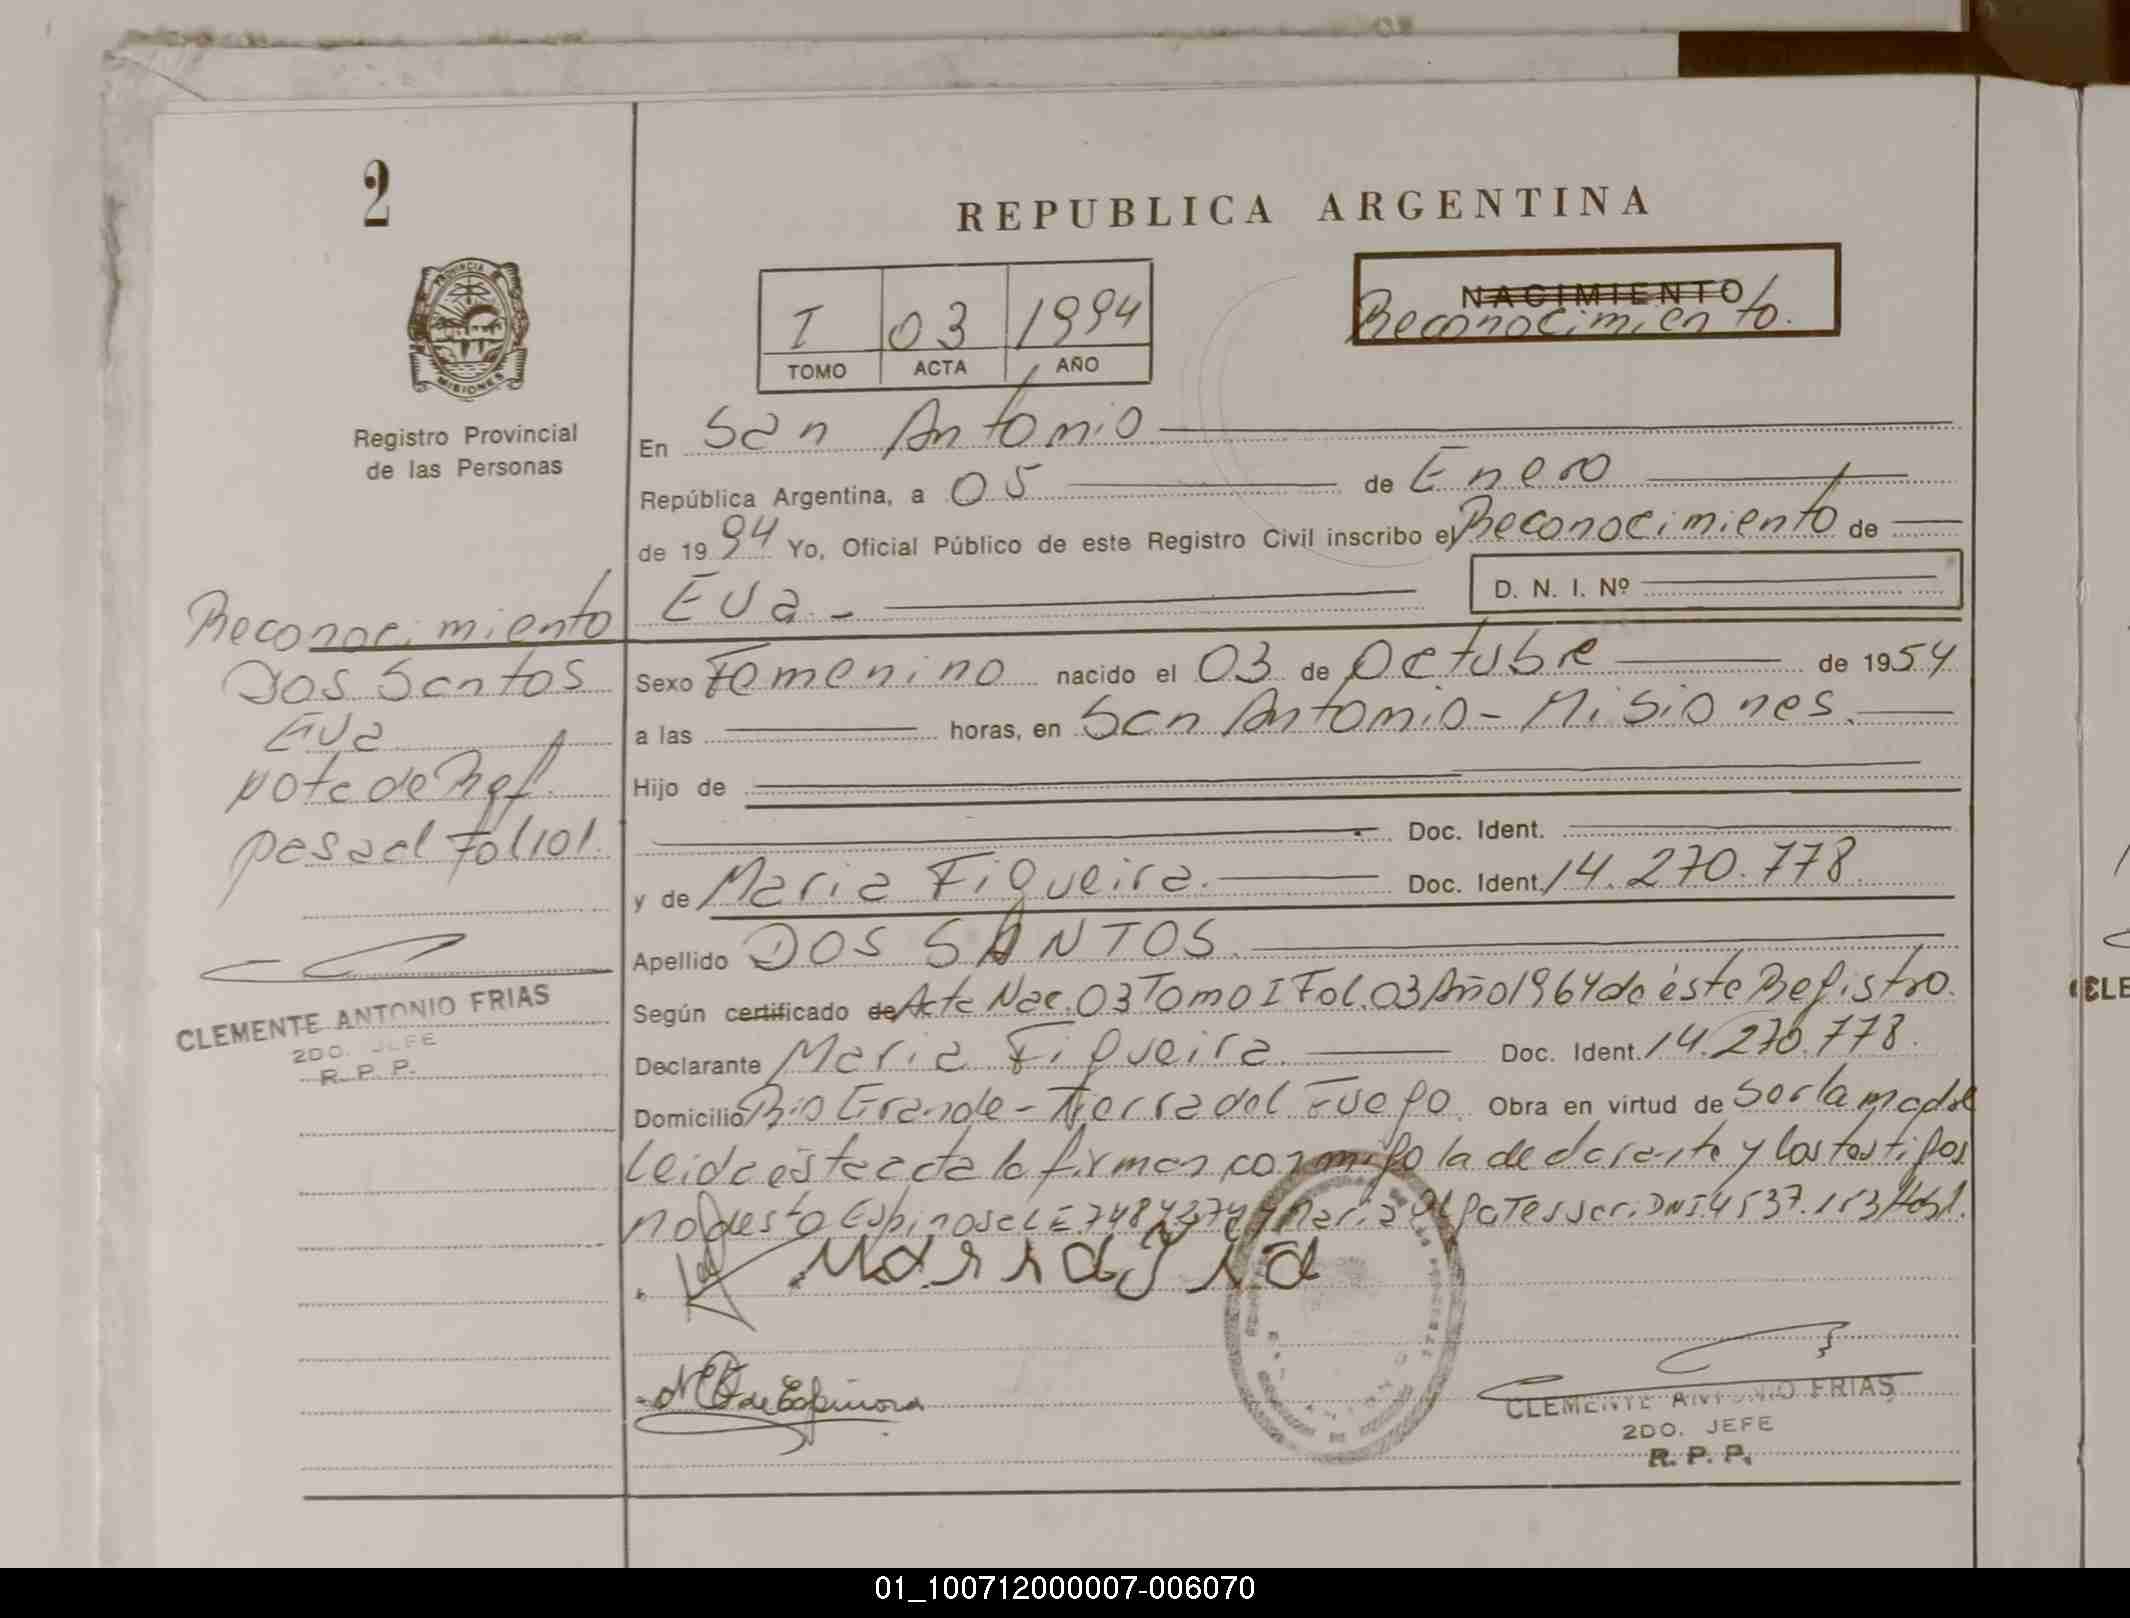 2
PROVINCIA
MISIONES
Registro Provincial
de las Personas
REPUBLICA ARGENTINA
I 03 1994
TOMO ACTA AÑO
NACIMIENTO
Reconocimiento.
En San Antonio
República Argentina, a 05 de Enero
de 1994 Yo, Oficial Público de este Registro Civil inscribo el Reconocimiento de
Eva.-
D. N. I. Nº
Sexo Femenino nacido el 03 de Octubre de 1954
a las horas, en San Antonio - Misiones.
Hijo de
Doc. Ident.
y de Maria Figueira. Doc. Ident. 14.270.778
Apellido DOS SANTOS.
Según certificado de Acta Nac. 03 Tomo I Fol. 03 Año 1964 de éste Registro.
Declarante Maria Figueira. Doc. Ident. 14.270.778.
Domicilio Rio Grande - Tierra del Fuego. Obra en virtud de ser la madre
Leida ésta acta la firman conmigo la declarante y los testigos
Modesto Espinosa L E 7484374 y Maria Tesseri DNI 4 537.153
Reconocimiento
Dos Santos
Eva
nota de Ref.
pasa al Folio 1.
CLEMENTE ANTONIO FRIAS
2DO. JEFE
R. P. P.
de Espinosa
CLEMENTE ANTONIO FRIAS
2DO. JEFE
R. P. P.
CLE
01_100712000007-006070